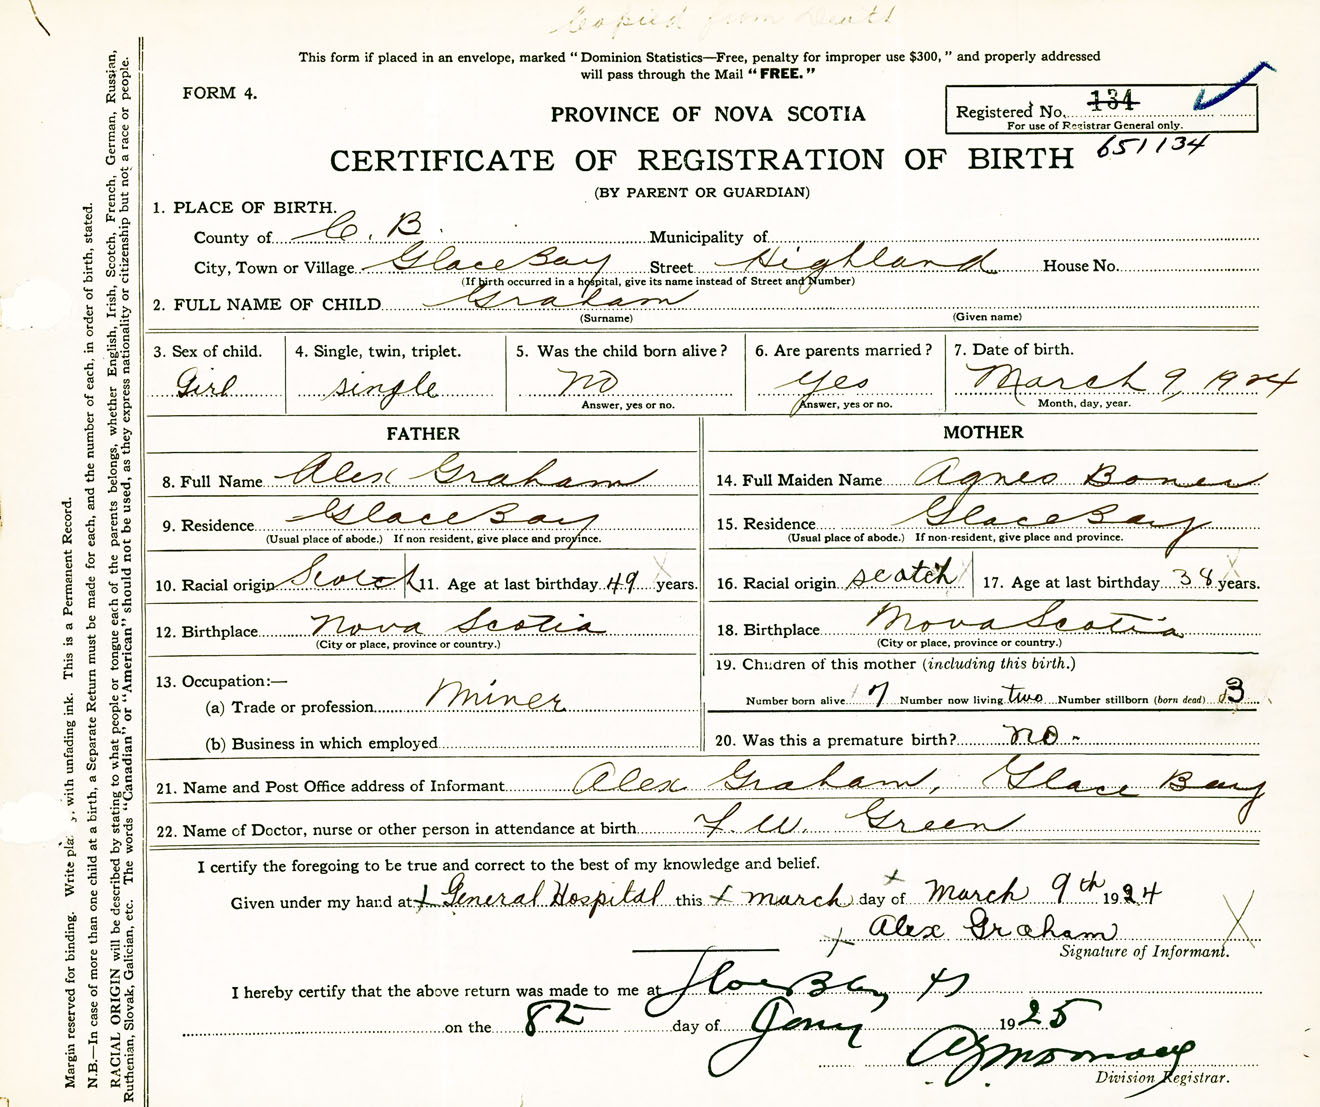 Copied from Death
This form if placed in an envelope, marked "Dominion Statistics—Free, penalty for improper use $300," and properly addressed
will pass through the Mail "FREE."
FORM 4.
PROVINCE OF NOVA SCOTIA
Registered No. 134
For use of Registrar General only.
651134
CERTIFICATE OF REGISTRATION OF BIRTH
(BY PARENT OR GUARDIAN)
1. PLACE OF BIRTH.
County of C. B. Municipality of
City, Town or Village Glace Bay Street Highland House No.
(If birth occurred in a hospital, give its name instead of Street and Number)
2. FULL NAME OF CHILD Graham
(Surname) (Given name)
3. Sex of child. 4. Single, twin, triplet. 5. Was the child born alive? 6. Are parents married? 7. Date of birth.
Girl single No yes March 9, 1924
Answer, yes or no. Answer, yes or no. Month, day, year.
FATHER MOTHER
8. Full Name Alex Graham 14. Full Maiden Name Agnes
9. Residence Glace Bay 15. Residence Glace Bay
(Usual place of abode.) If non resident, give place and province. (Usual place of abode.) If non-resident, give place and province.
10. Racial origin Scotch 11. Age at last birthday 49 years. 16. Racial origin scotch 17. Age at last birthday 38 years.
12. Birthplace Nova Scotia 18. Birthplace Nova Scotia
(City or place, province or country.) (City or place, province or country.)
19. Children of this mother (including this birth.)
13. Occupation:—
(a) Trade or profession Miner Number born alive 7 Number now living two Number stillborn (born dead) 3
(b) Business in which employed 20. Was this a premature birth? no -
21. Name and Post Office address of Informant Alex Graham, Glace Bay
22. Name of Doctor, nurse or other person in attendance at birth F. W. Green
I certify the foregoing to be true and correct to the best of my knowledge and belief.
Given under my hand at x General Hospital this x march day of March 9th 1924
x Alex Graham X
Signature of Informant.
I hereby certify that the above return was made to me at Glace Bay
on the 8th day of Jany 1925
Division Registrar.
Margin reserved for binding. Write plainly, with unfading ink. This is a Permanent Record.
N.B.—In case of more than one child at a birth, a Separate Return must be made for each, and the number of each, in order of birth, stated.
RACIAL ORIGIN will be described by stating to what people or tongue each of the parents belongs, whether English, Irish, Scotch, French, German, Russian,
Ruthenian, Slovak, Galician, etc. The words "Canadian" or "American" should not be used, as they express nationality or citizenship but not a race or people.